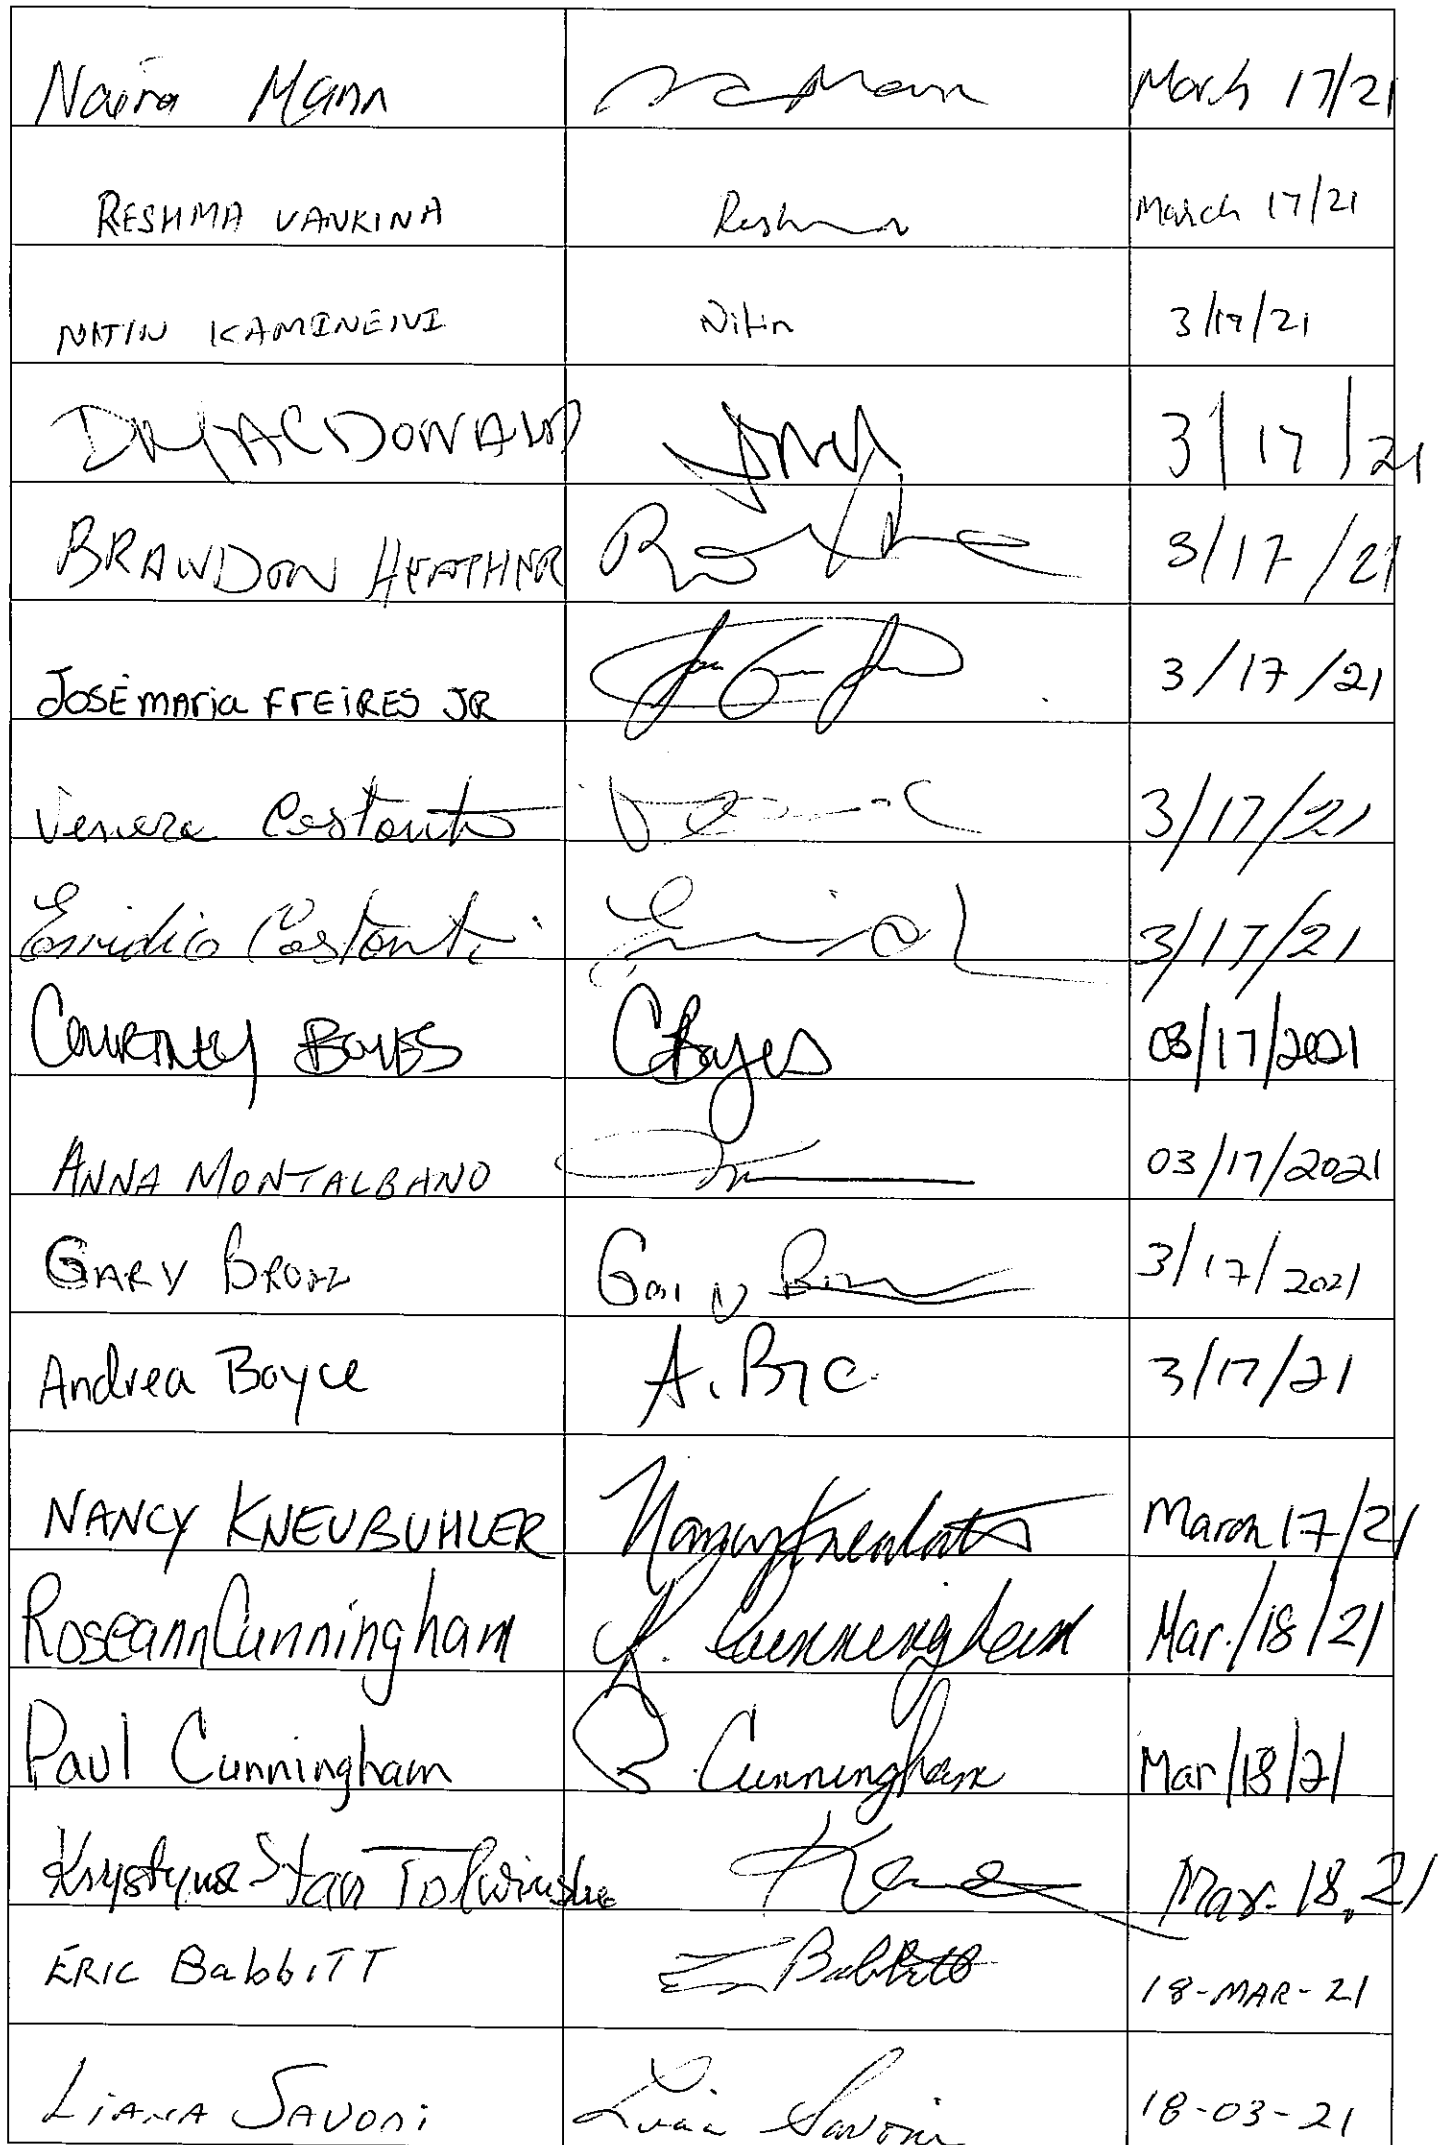 Naina Mann Mann March 17/21
RESHMA VANKINA Reshma March 17/21
NITIN KAMINENI Nitin 3/19/21
D MACDONALD 3/17/21
BRANDON HEATHNR 3/17/21
JOSÉ MARIA FREIRES JR 3/17/21
Venera Costanti 3/17/21
Emidio Costanti 3/17/21
COURTNEY BOYES CBoyes 03/17/2021
ANNA MONTALBANO 03/17/2021
GARY BROIZ Gary 3/17/2021
Andrea Boyce A. 3/17/21
NANCY KNEUBUHLER Nancy March 17/21
Roseann Cunningham R. Cunningham Mar./18/21
Paul Cunningham P Cunningham Mar/18/21
Krystyna Stan Mar. 18, 21
ERIC BabbiTT E Babbitt 18-MAR-21
LiANA SAVONi Liana Savoni 18-03-21